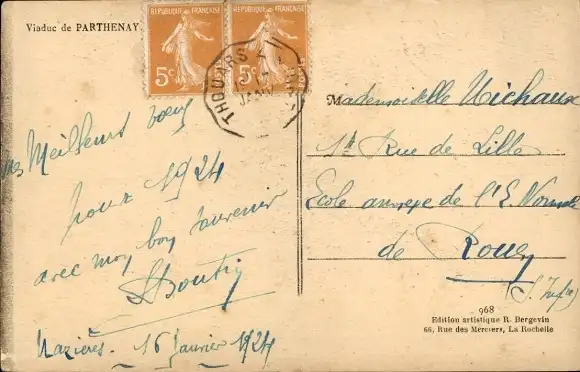 Viaduc de PARTHENAY
REPUBLIQUE FRANÇAISE
5c
REPUBLIQUE FRANÇAISE
5c
THOUARS
JANV
mes Meilleurs voeux
pour 1924
avec mon bon souvenir
Mazières - 16 Janvier 1924
Mademoiselle Michaux
Rue de Lille
Ecole annexe de l'E. Normale
de Rouen
(S. Infre)
968
Edition artistique R. Bergevin
66, Rue des Merciers, La Rochelle